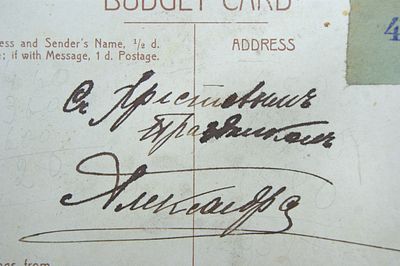 BUDGET CARD
ess and Sender's Name, ½ d.
e; if with Message, 1 d. Postage.
ADDRESS
4
Съ Крестовымъ
праздникомъ
Александра
ngs from